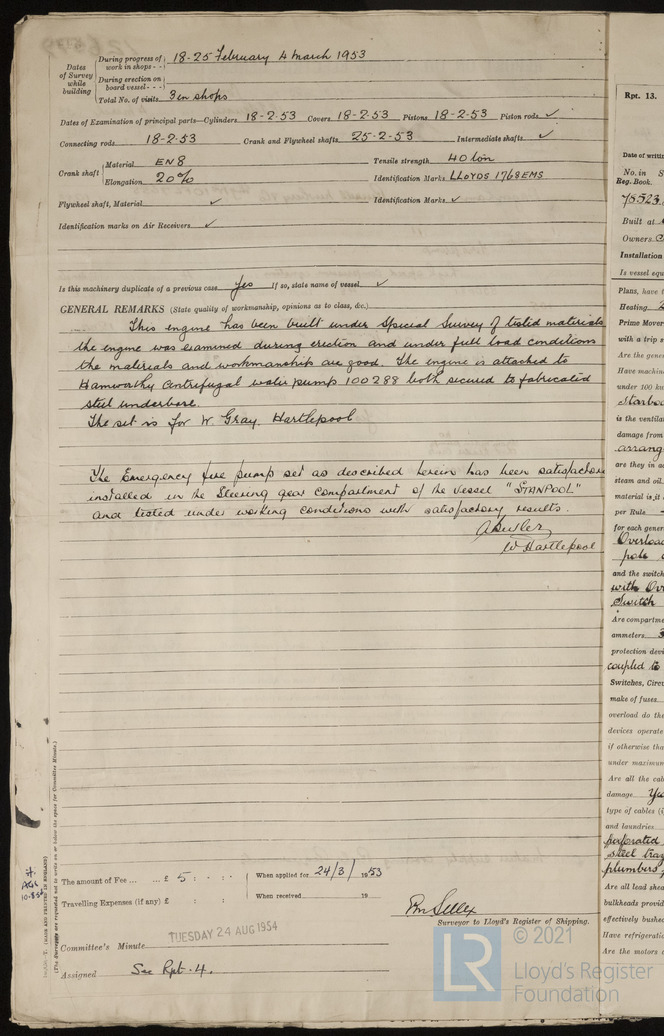 Dates of Survey while building
During progress of work in shops - - 18-25 February 4 March 1953
During erection on board vessel - - -
Total No. of visits 3 in shops
Dates of Examination of principal parts—Cylinders 18-2-53 Covers 18-2-53 Pistons 18-2-53 Piston rods ✓
Connecting rods 18-2-53 Crank and Flywheel shafts 25-2-53 Intermediate shafts ✓
Crank shaft Material EN8 Tensile strength 40 ton
Elongation 20% Identification Marks LLOYDS 1768 EMS
Flywheel shaft, Material ✓ Identification Marks ✓
Identification marks on Air Receivers ✓
Is this machinery duplicate of a previous case yes If so, state name of vessel ✓
GENERAL REMARKS (State quality of workmanship, opinions as to class, &c.)
This engine has been built under Special Survey of tested materials
the engine was examined during erection and under full load conditions
the materials and workmanship are good. The engine is attached to
Hamworthy Centrifugal water pump 100288 both secured to fabricated
steel underbase.
The set is for W. Gray. Hartlepool
The Emergency fire pump set as described herein has been satisfactory
installed in the Steering gear Compartment of the vessel "STANPOOL"
and tested under working conditions with satisfactory results.
W Hartlepool
The amount of Fee ... £ 5 : : When applied for 24/3/1953
Travelling Expenses (if any) £ : : When received 19
Surveyor to Lloyd's Register of Shipping.
Committee's Minute TUESDAY 24 AUG 1954
Assigned See Rpt. 4.
© 2021
LR Lloyd's Register
Foundation
Rpt. 13.
Date of writi
No. in S
Reg. Book.
78523
Built at
Owners
Installation
Is vessel equ
Plans, have t
Heating
Prime Mover
with a trip s
Are the gene
Have machin
under 100 k
Starbo
is the ventila
damage from
arrang
are they in a
steam and oil
material is it
per Rule
for each gener
Overload
pole
and the switch
with Ov
Switch
Are compartme
ammeters 3
protection devi
coupled to
Switches, Circu
make of fuses
overload do the
devices operate
if otherwise tha
under maximum
Are all the cab
damage
type of cables (i
and laundries
perforated
steel tray
plumbers
Are all lead shea
bulkheads provid
effectively bushe
Have refrigerati
Are the motors